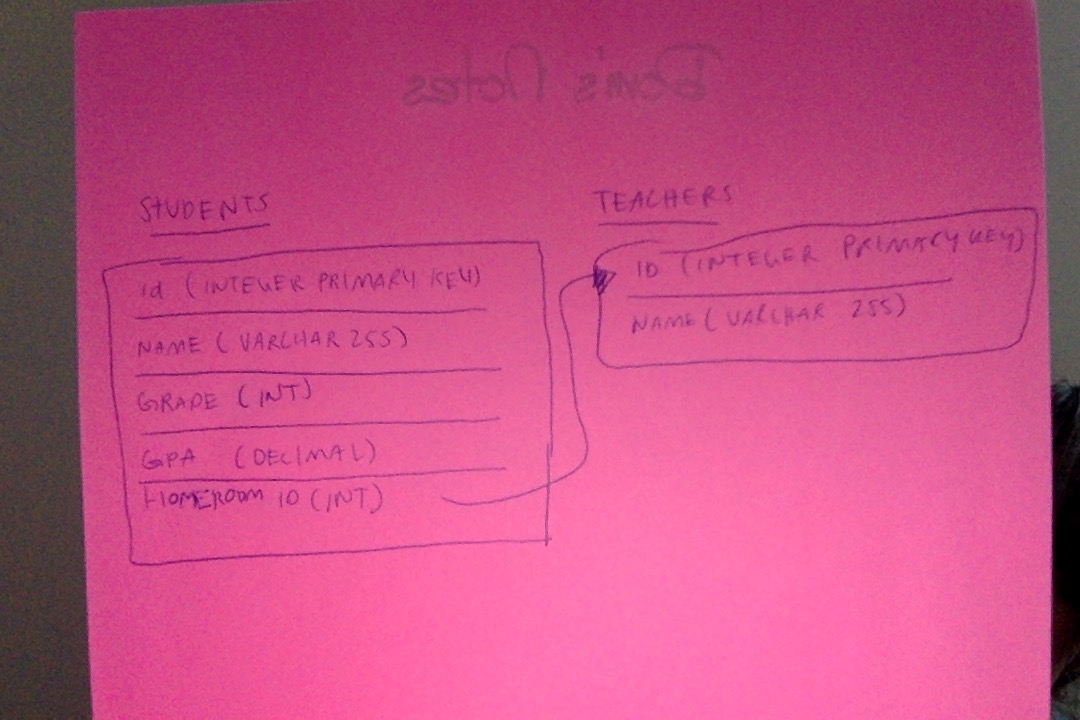 Tom's Notes
STUDENTS
id (INTEGER PRIMARY KEY)
NAME (VARCHAR 255)
GRADE (INT)
GPA (DECIMAL)
HOMEROOM ID (INT)
TEACHERS
ID (INTEGER PRIMARY KEY)
NAME (VARCHAR 255)